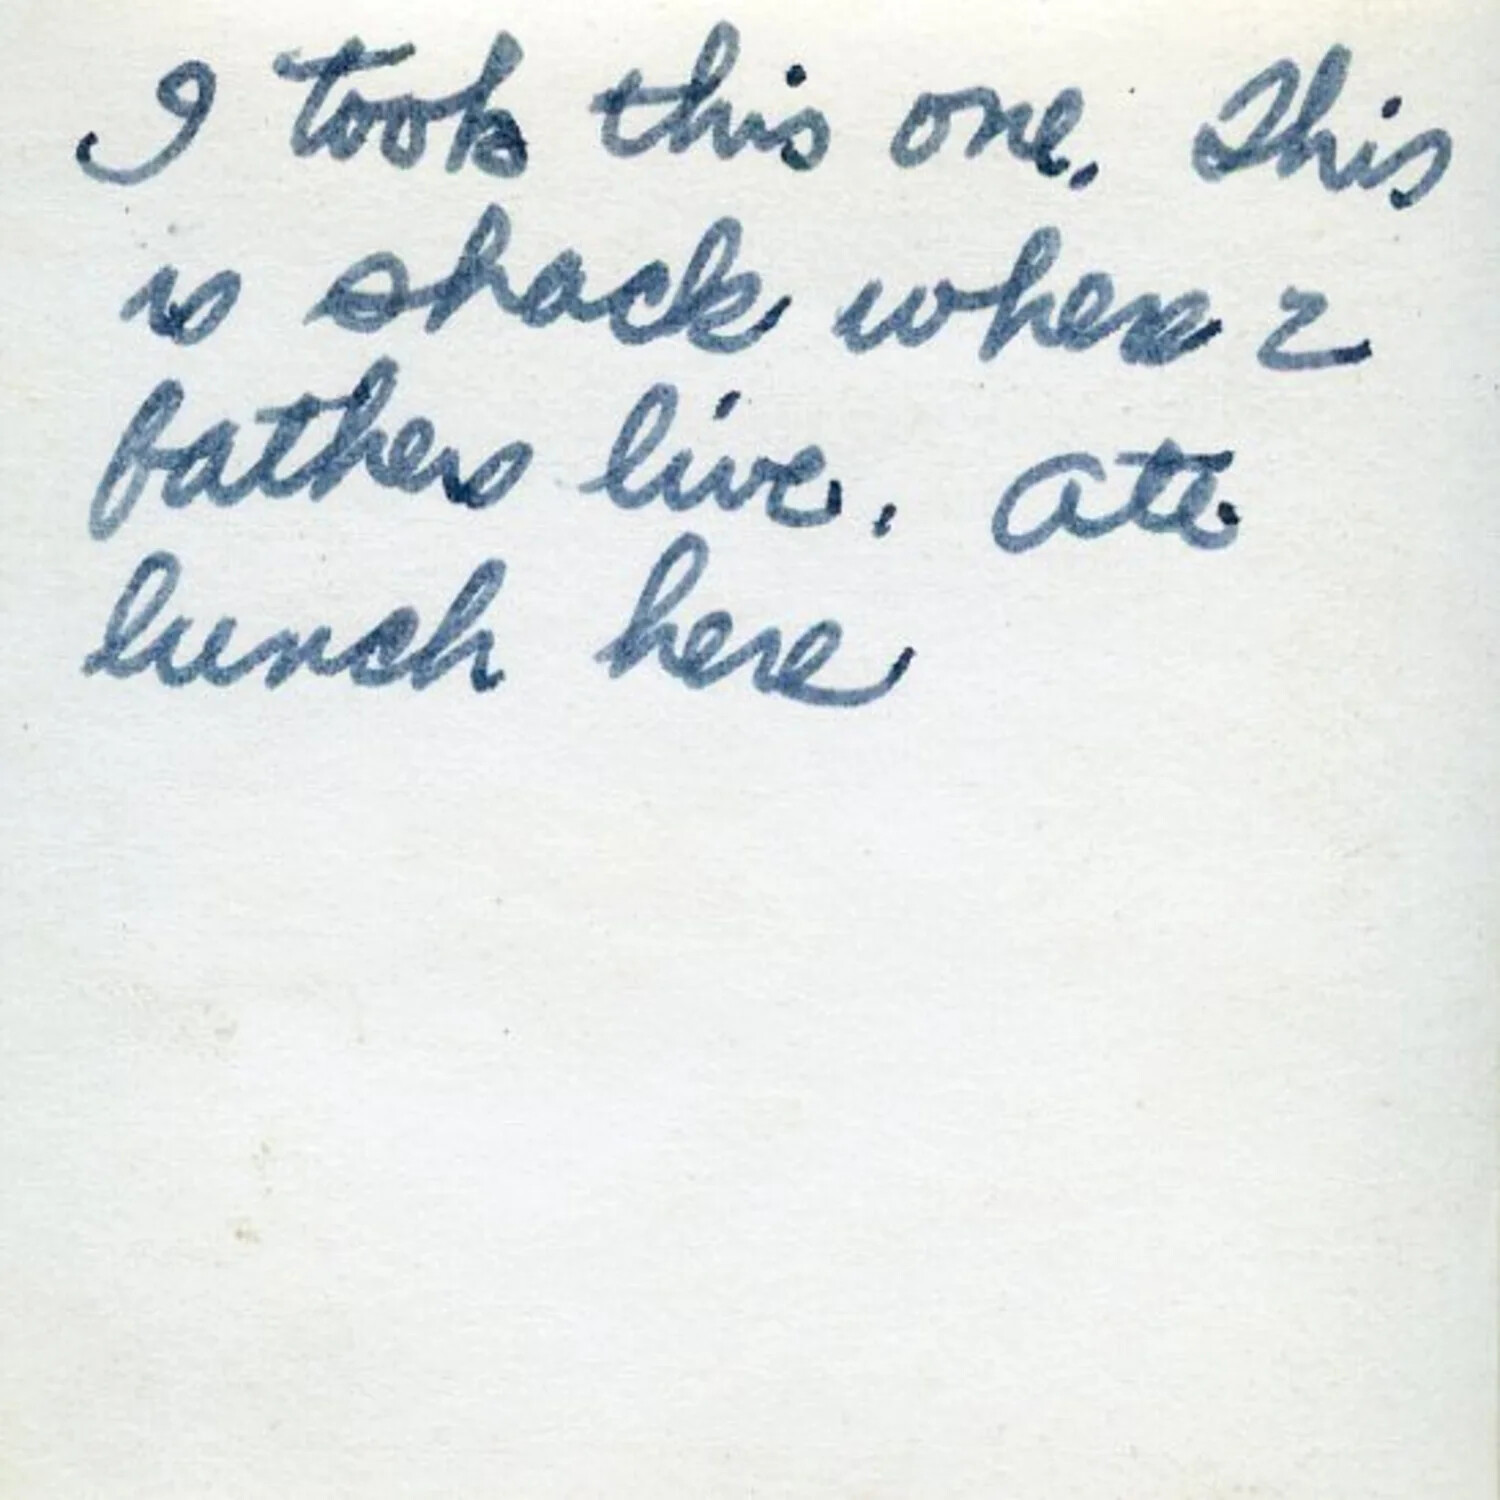 I took this one. This
is shack where 2
fathers live. Ate
lunch here